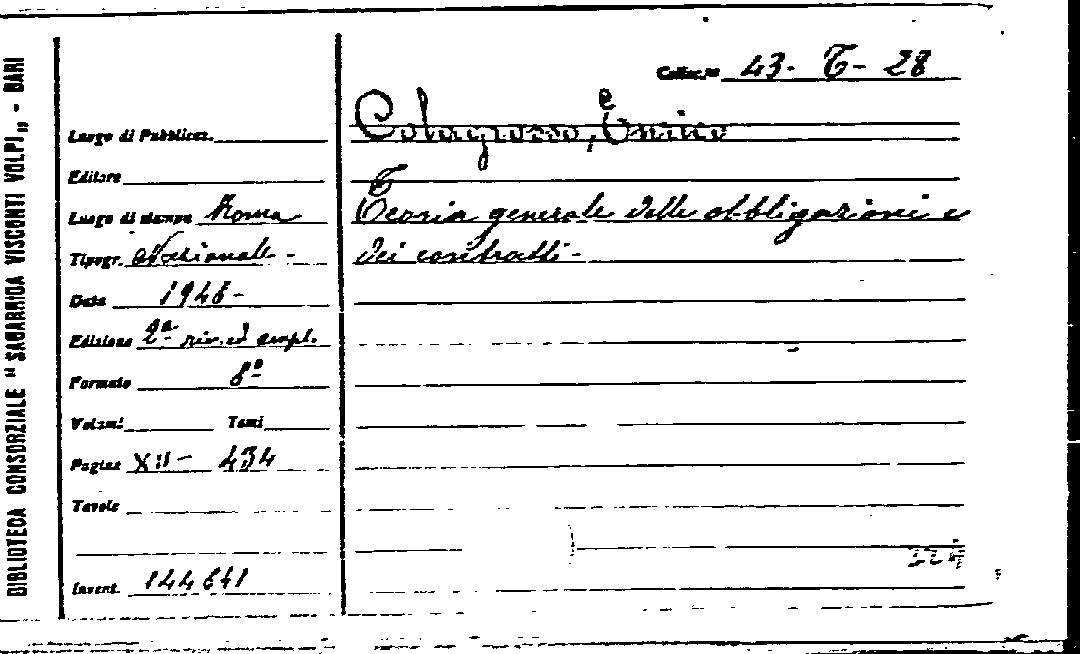 BIBLIOTECA CONSORZIALE "SAGARRIGA VISCONTI VOLPI" - BARI
Colloc.ne 43- T- 28
Colagrosso, Enrico
Teoria generale delle obbligazioni e
dei contratti-
Luogo di Pubblicaz.
Editore
Luogo di stampa Roma
Tipogr. Nazionale -
Data 1948-
Edizione 2ª riv. ed ampl.
Formato 8º
Volumi Tomi
Pagine XII- 434
Tavole
Invent. 144641